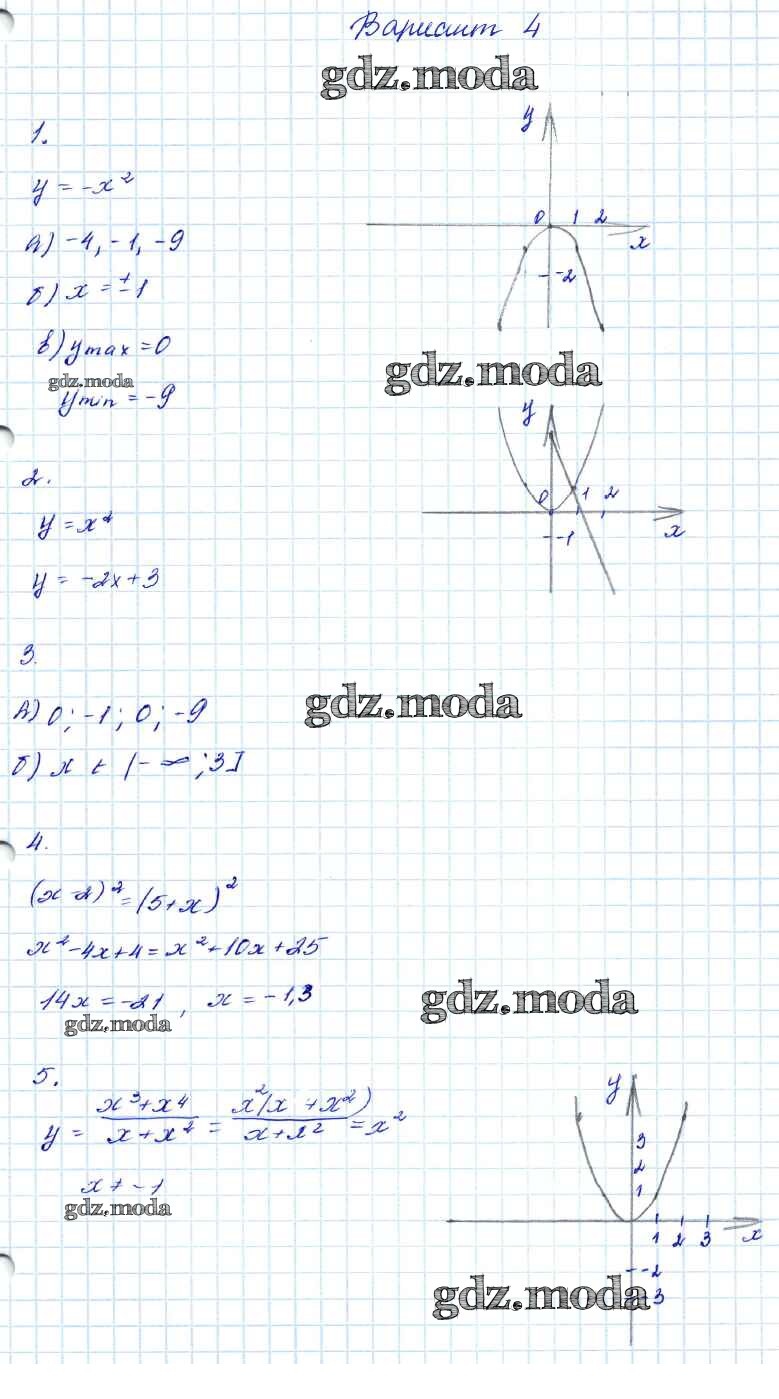 Вариант 4
gdz.moda
1.
y = -x²
а) -4, -1, -9
б) x = ± 1
в) y max = 0
gdz.moda
y min = -9
y
0 1 2
x
-2
gdz.moda
2.
y = x²
y = -2x + 3
y
0 1 2
x
-1
3.
а) 0; -1; 0; -9
gdz.moda
б) x ϵ (-∞; 3]
4.
(x - 2)² = (5 + x)²
x² - 4x + 4 = x² + 10x + 25
14x = -21, x = -1,3
gdz.moda
gdz.moda
5.
y = (x³ + x⁴)/(x + x²) = x²(x + x²)/(x + x²) = x²
x ≠ -1
gdz.moda
y
3
2
1
1 2 3 x
-2
3
gdz.moda